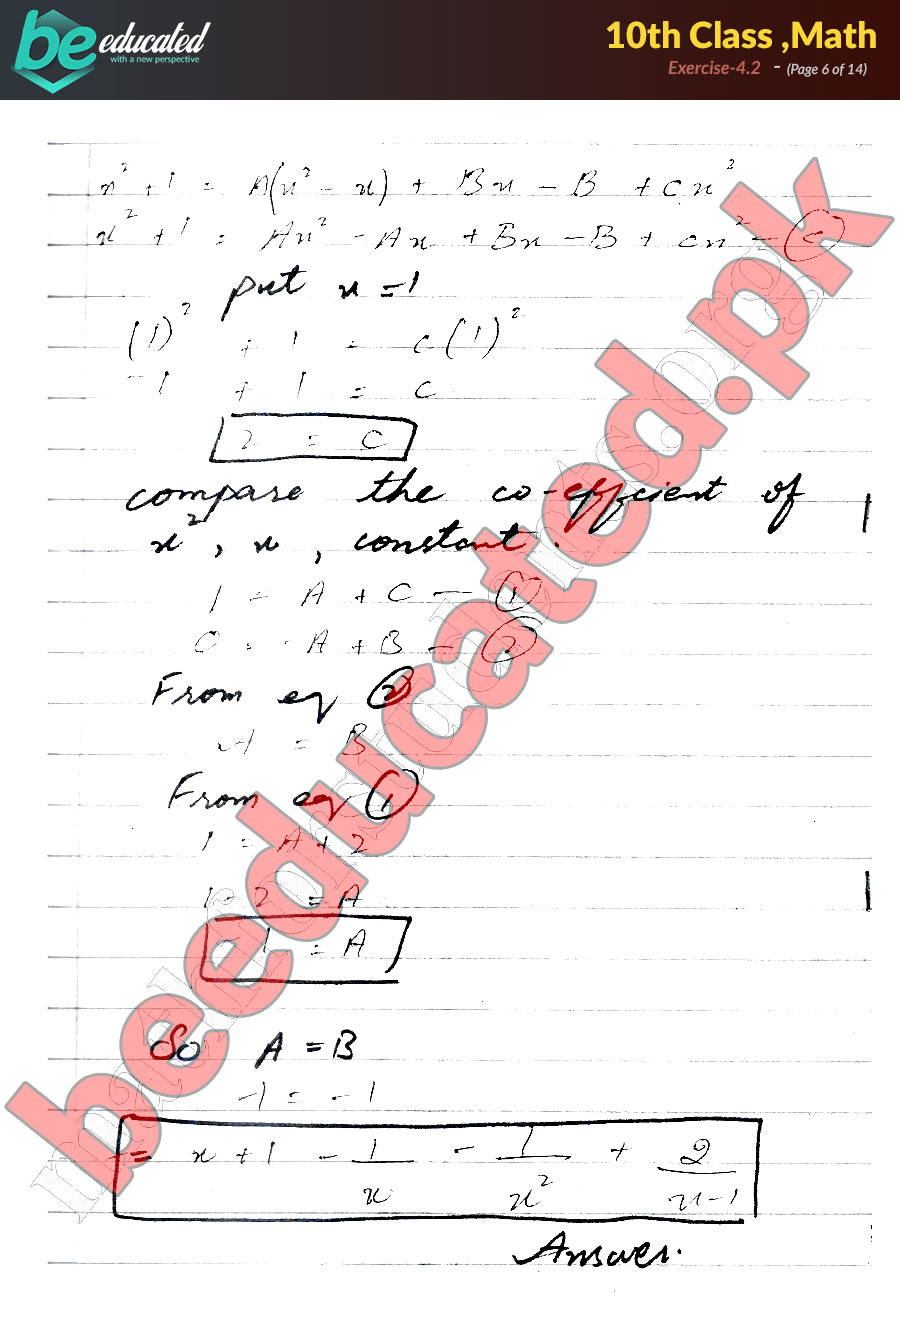 be educated
with a new perspective
10th Class ,Math
Exercise-4.2 - (Page 6 of 14)
x² + 1 = A(x² - x) + Bx - B + Cx²
x² + 1 = Ax² - Ax + Bx - B + Cx² - (c)
put x = 1
(1)² + 1 = C(1)²
1 + 1 = C
2 = C
compare the co-efficient of
x², x, constant.
1 = A + C - (1)
0 = -A + B - (2)
From eq (2)
A = B
From eq (1)
1 = A + 2
1 - 2 = A
-1 = A
So A = B
-1 = -1
= x + 1 - 1/x - 1/x² + 2/(x-1)
Answer.
beeducated.pk